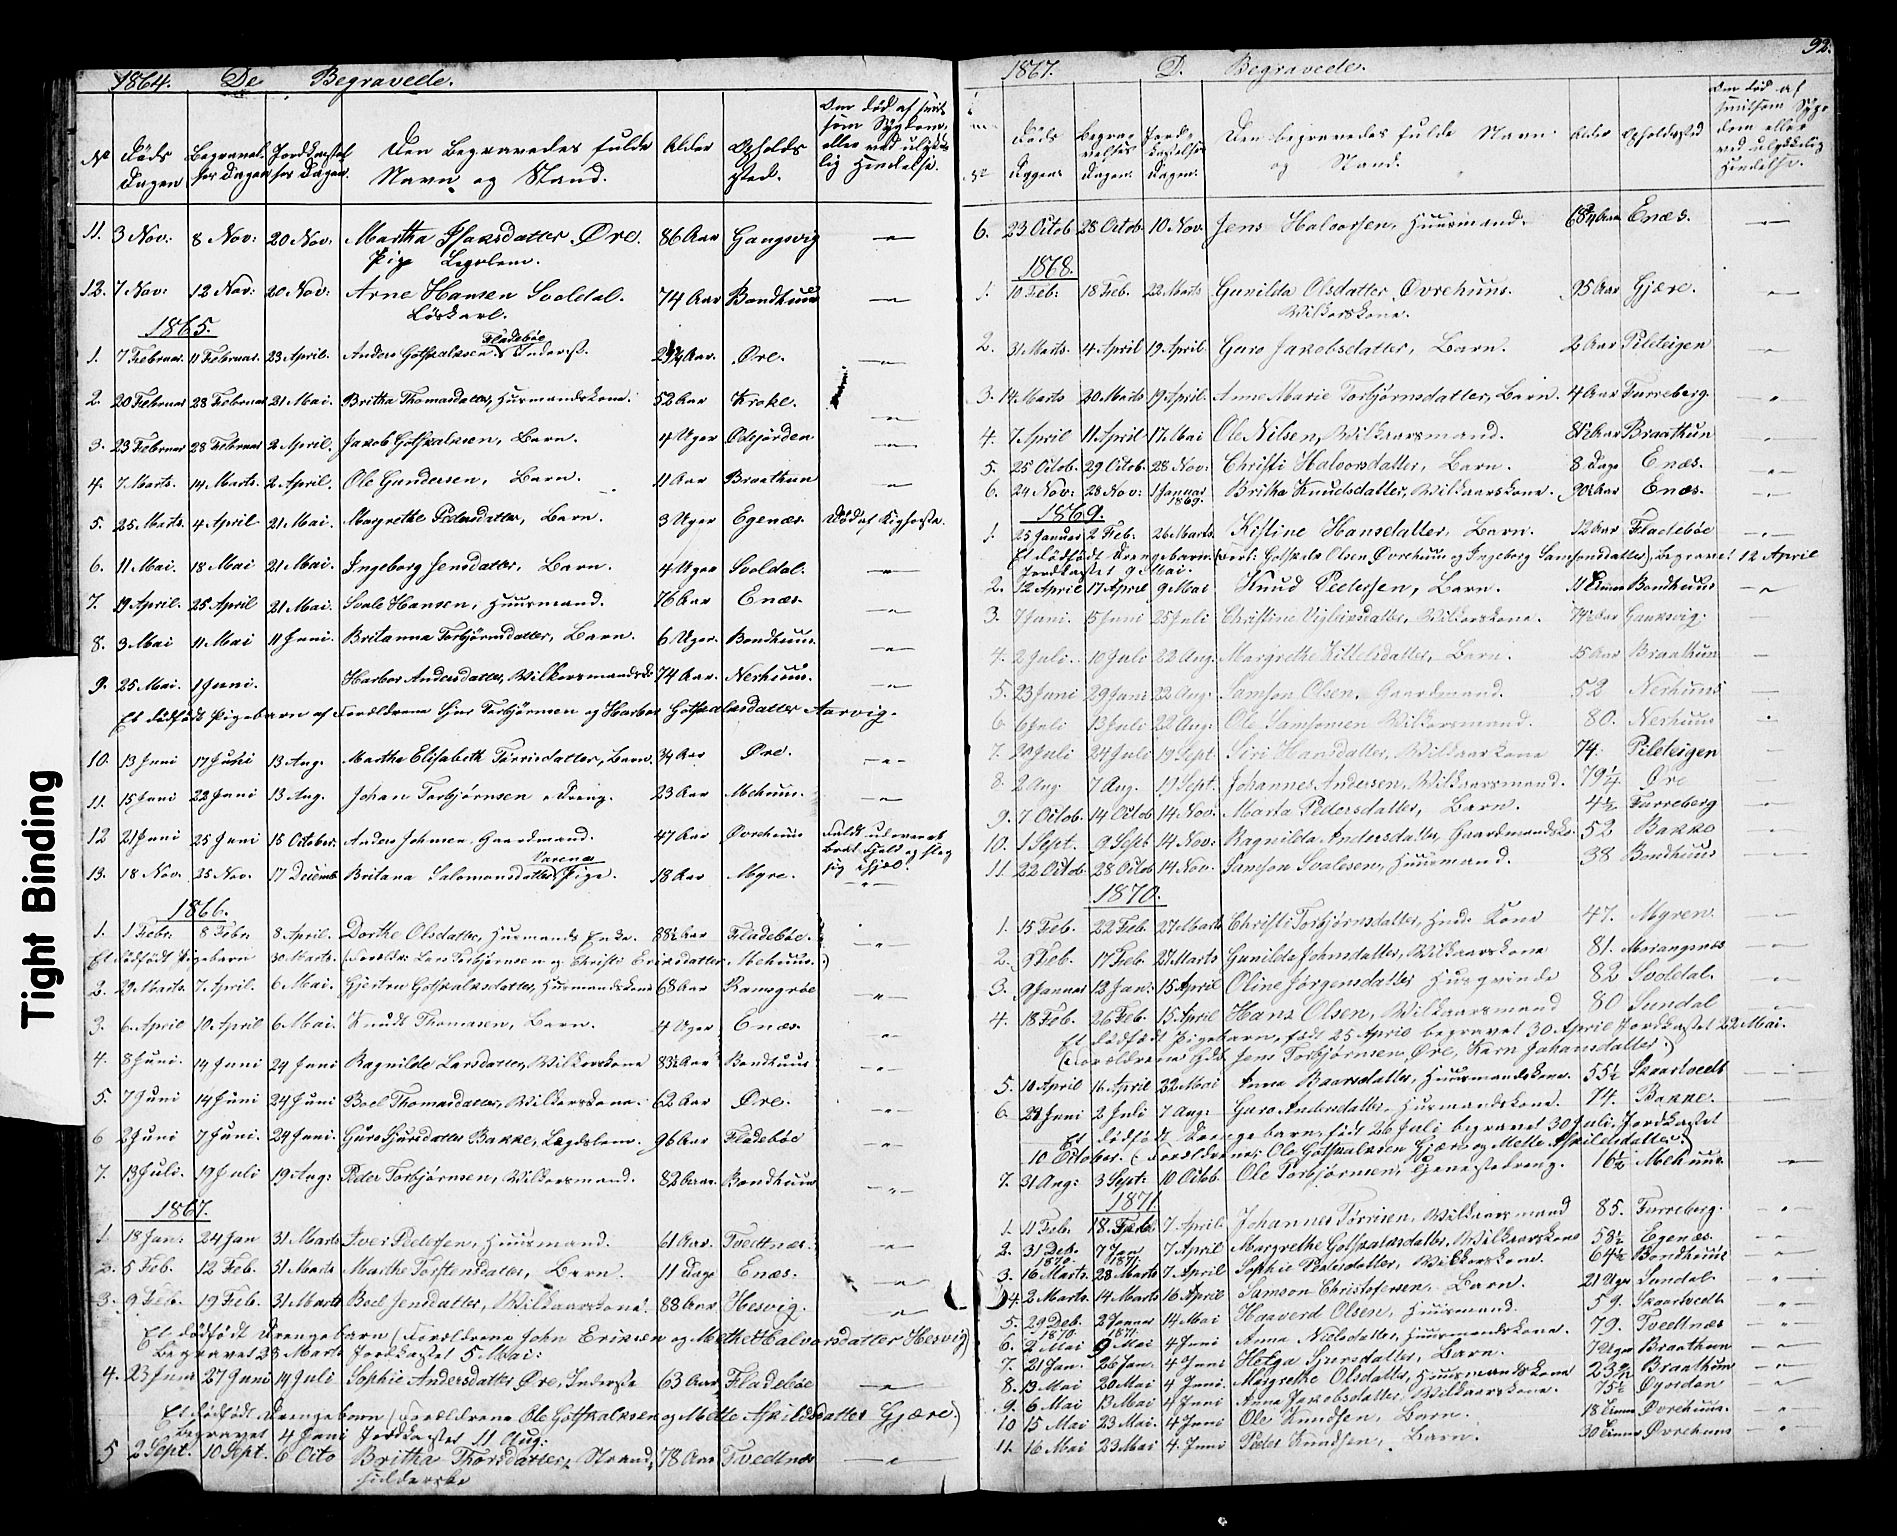 1864. De Begravede.
No Døds Dagen Begravelses Dagen Jordkastelses Dagen. Den Begravedes fulde Navn og Stand. Alder Opholds sted. Om død af smitsom Sygdom, eller ved ulykkelig Hendelse.
11. 3 Nov: 8 Nov: 20 Nov: Martha Isaksdatter Øre. 86 Aar Gangsvig
Pige Legslem.
12. 7 Nov: 12 Nov: 20 Nov: Arne Hansen Svoldal. 74 Aar Bondhuus
Løskarl.
1865.
Fladebøe
1. 7 Februar 11 Februar 23 April. Anders Gotskalksen Inderst. Aar. Øre.
2. 20 Februar 28 Februar 21 Mai. Britha Thomasdatter, Huusmandskone. 52 Aar Kroke.
3. 23 Februar 28 Februar 2 April. Jakob Gotskalksen, Barn. 4 Uger Ødejorden
4. 7 Marts. 14 Marts. 2 April. Ole Gundersen, Barn. 11 Aar Braathun
5. 25 Marts 4 April 21 Mai. Margrethe Pedersdatter, Barn. 3 Uger Egenæs. Død af Kighoste.
6. 11 Mai. 18 Mai 21 Mai. Ingeborg Jensdatter, Barn. 4 Uger Svoldal.
7. 19 April. 25 April 21 Mai. Svale Hansen, Huusmand. 76 Aar Enæs.
8. 3 Mai 11 Mai 11 Juni. Britanna Torbjørnsdatter, Barn. 6 Uger. Bondhuus.
9. 25 Mai. 1 Juni. Harbor Andersdatter, Wilkorsmandsk. 74 Aar. Nerhuus.
Et dødfødt Pigebarn af Forældrene Sjur Torbjørnsen og Harbor Gotskalksdatter Aarvig.
10. 13 Juni 17 Juni 13 Aug. Martha Elisabeth Tørrisdatter, Barn. Aar Øre.
11. 15 Juni 22 Juni 13 Aug. Johan Torbjørnsen, Dreng. 23 Aar Mehuus.
12 21 Juni 25 Juni 15 October. Anders Johnsen Gaardmand. 47 Aar Øvrehuus Faldt udover et bradt Fjeld og slog sig ihjel.
Varenæs
13. 18 Nov. 25 Nov. 17 Decemb. Britana Salomonsdatter Pige. 18 Aar Myre.
1866.
1. 1 Febr. 8 Febr. 8 April. Dorthe Olsdatter, Husmands Enke. 88½ Aar Fladebøe.
Et dødfødt Pigebarn 30 Marts. (Forældr: Lars Torbjørnsen og Christi Eriksdatter, Mehuus.)
2. 29 Marts. 7 April. 6 Mai. Gjertru Gotskalksdatter, Husmandskone 68 Aar Ramsgrøe
3. 6 April 10 April 6 Mai. Knudt Thomasen, Barn. 4 Uger Enæs.
4. 8 Juni. 14 Juni 24 Juni Ragnilde Larsdatter, Wilkorskone 83½ Aar Bondhuus
5. 7 Juni 14 Juni 24 Juni Boel Thomasdatter, Wilkorskone. 62 Aar Øre.
6 2 Juni 7 Juni. 24 Juni. Guro Sjursdatter Bakke, Lægdslem. 96 Aar Fladebøe
7. 13 Juli. 19 Juli 19 Aug: Peder Torbjørnsen, Wilkorsmand. 82 Aar. Bondhuus
1867.
1. 18 Jan: 24 Jan 31 Marts Iver Pedersen, Huusmand. 61 Aar. Tvedtnæs.
2. 5 Feb. 12 Feb. 31 Marts Marthe Torstensdatter, Barn. 11 Dage Enæs.
3. 9 Feb. 19 Feb. 31 Marts Boel Jensdatter, Wilkaarskone. 88 Aar Hesvig.
Et dødfødt Drengebarn (Forældrene John Eriksen og Mette Halvorsdatter Hesvig)
Begravet 23 Marts Jordkastet 5 Mai:
4. 23 Juni 27 Juni 14 Juli Sophie Andersdatter Øre, Inderste 63 Aar Fladebøe
Et dødfødt Drengebarn (Forældrene Ole Gotskalksen og Mette Askildsdatter Gjære.)
Begravet 4 Juni Jordkastet 11 Aug:
5 2 Sept. 10 Sept. 6 Octo Britha Thorsdatter, Strand- 78 Aar Tvedtnæs
sidderske
92.
1867. D. Begravede.
No Døds Dagen Begravelses Dagen. Jordkastelses Dagen. Den begravedes fulde Navn og Stand. Alder Opholdssted Om død af smitsom Sygdom eller ved ulykkelig Hendelse.
6. 23 Octob 28 Octob 10 Nov Jens Halvorsen, Huusmand. Aar Enæs.
1868.
1. 10 Feb: 18 Feb. 22 Marts Gunilda Olsdatter Øvrehuus. 95 Aar Gjære.
Wilkorskone.
2. 31 Marts. 4 April 19 April. Guro Jakobsdatter, Barn. Aar Pileteigen
3. 14 Marts 20 Marts 19 April. Anne Marie Torbjørnsdatter, Barn. 4 Aar Furreberg.
4. 7 April 11 April 17 Mai Ole Nilsen, Wilkaarsmand. 81½ Aar Braathun
5. 25 Octob. 29 Octob. 28 Nov: Christi Halvorsdatter, Barn. 8 Dage Enæs.
6. 24 Nov: 28 Nov: 1 Januar 1869. Britha Knudsdatter, Wilkaarskone. 90½ Aar Enæs.
1869.
1. 25 Januar 2 Feb. 26 Marts. Kistine Hansdatter, Barn. 12 Aar Fladebøe
Et dødfødt Drengebarn. (Forl: Gotskalk Olsen Øvrehuus og Ingeborg Samsonsdatter) Begravet 12 April
Jordkastet 9 Mai.
2. 12 April 17 April 9 Mai Knud Pedersen, Barn. Bondhuus
3. 7 Juni. 15 Juni 25 Juli Christine Vigleiksdatter, Wilkorskone. Aar Gangsvig.
4. 2 Juli. 10 Juli 22 Aug. Margrethe Kittelsdatter, Barn. 15 Aar Braathun
5. 23 Juni 29 Juni 22 Aug. Samson Olsen, Gaardmand. 52 Nerhuus
6. 6 Juli 13 Juli 22 Aug: Ole Samsonsen Wilkorsmand. 80. Nerhuus
7. 20 Juli 24 Juli 19 Sept. Siri Hansdatter, Wilkaarskone 74. Pileteigen
8. 2 Aug. 7 Aug. 19 Sept. Johannes Andersen, Wilkaarsmand. 79¼ Øre
9. 7 Octob. 14 Octob 14 Nov. Marta Pedersdatter, Barn. 4½ Furreberg
10. 1 Sept. 9 Sept 14 Nov: Ragnilda Andersdatter, Gaardmandsko. 52 Bakke
11. 22 Octob. 28 Octob 14 Nov. Samson Svalesen, Huusmand. 38 Bondhuus
1870.
1. 15 Feb. 22 Feb. 27 Marts Christi Torbjørnsdatter, Husm. Kone 47. Myren.
2. Feb. 17 Feb. 27 Marts Gunilda Johnsdatter, Wilkaarskone 81. Mærangsnæs
3. 9 Januar 12 Jan: 15 April Oline Jørgensdatter Husqvinde 82 Svoldal.
4. 18 Feb. 26 Feb. 15 April Hans Olsen, Wilkaarsmand 80 Sundal
Et dødfødt Pigebarn, født 25 April begravet 30 April Jordkastet 22 Mai.
(Forældrene Gdb. Jens Torbjørnsen Øre, Karn Johansdatter.)
5. 10 April 16 April 22 Mai Anna Baarsdatter, Huusmandskone. 55½ Skaartvedt
6. 24 Juni 2 Juli 7 Aug: Guro Andersdatter, Husmandskone. 74. Bakke.
Et dødfødt Drengebarn, født 26 Juli begravet 30 Juli. Jordkastet
10 October. (Forældrene, Ole Gotskalksen Gjære og Mette Askildsdatter.)
7. 31 Aug: 3 Sept: 10 Octob. Ole Torbjørnsen, Tjenestedreng. 16½ Mehuus
1871
1. 11 Feb. 18 Feb. 7 April. Johannes Tørrisen, Wilkaarsmand 85. Furreberg.
2. 31 Deb. 1870. 7 Jan 1871. 7 April Margrethe Gotskalksdatter, Wilkaarskone 58½ Egenæs.
3. 16 Marts. 28 Marts 7 April Sophie Pedersdatter, Wilkorskone. 64½ Bondhuus
4. 2 Marts. 14 Marts 16 April Samson Christofersen, Barn. 21 Uger Sundal.
5. 29 Deb. 1870. 2 Januar 1871. 14 Mai Haaverd Olsen, Huusmand. 59. Skaartvedt
6. 2 Mai 9 Mai 4 Juni Anna Nielsdatter, Huusmandskone. 79. Tvedtnæs
7. 21 Jan. 26 Jan. 4 Juni Helga Sjursdatter, Barn. 7 Uger Braathun
8. 19 Mai 20 Mai 4 Juni. Margrethe Olsdatter, Huusmandskone Braathun
9. 6 Mai 13 Mai 4 Juni Anna Jakobsdatter, Wilkaarskone. 75½ Øyordan
10 15 Mai 23 Mai. 4 Juni Ole Knudsen, Barn. Øvrehuus.
11. 16 Mai 23 Mai 4. Juni Peder Knudsen, Barn. Øvrehuus
Tight Binding